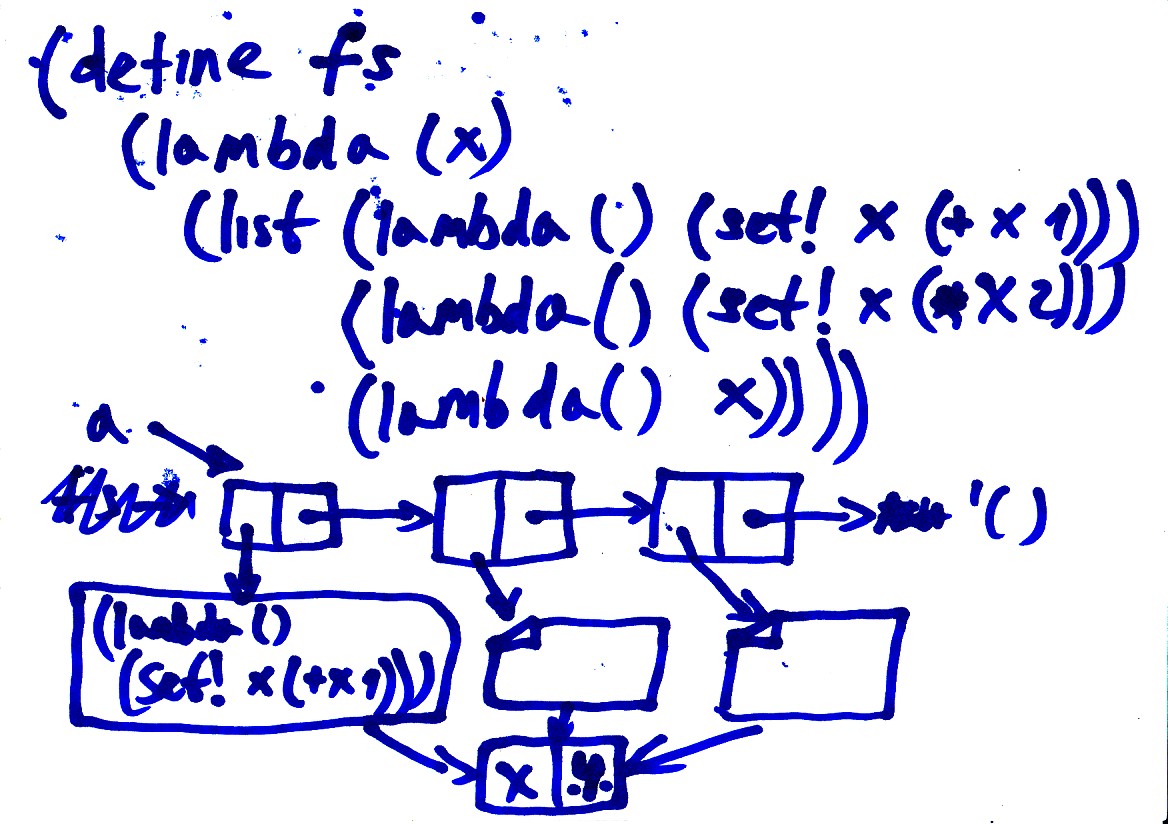 (define fs
(lambda (x)
(list (lambda () (set! x (+ x 1)))
(lambda () (set! x (* x 2)))
(lambda () x))))
a
'()
(lambda ()
(set! x (+ x 1)))
x